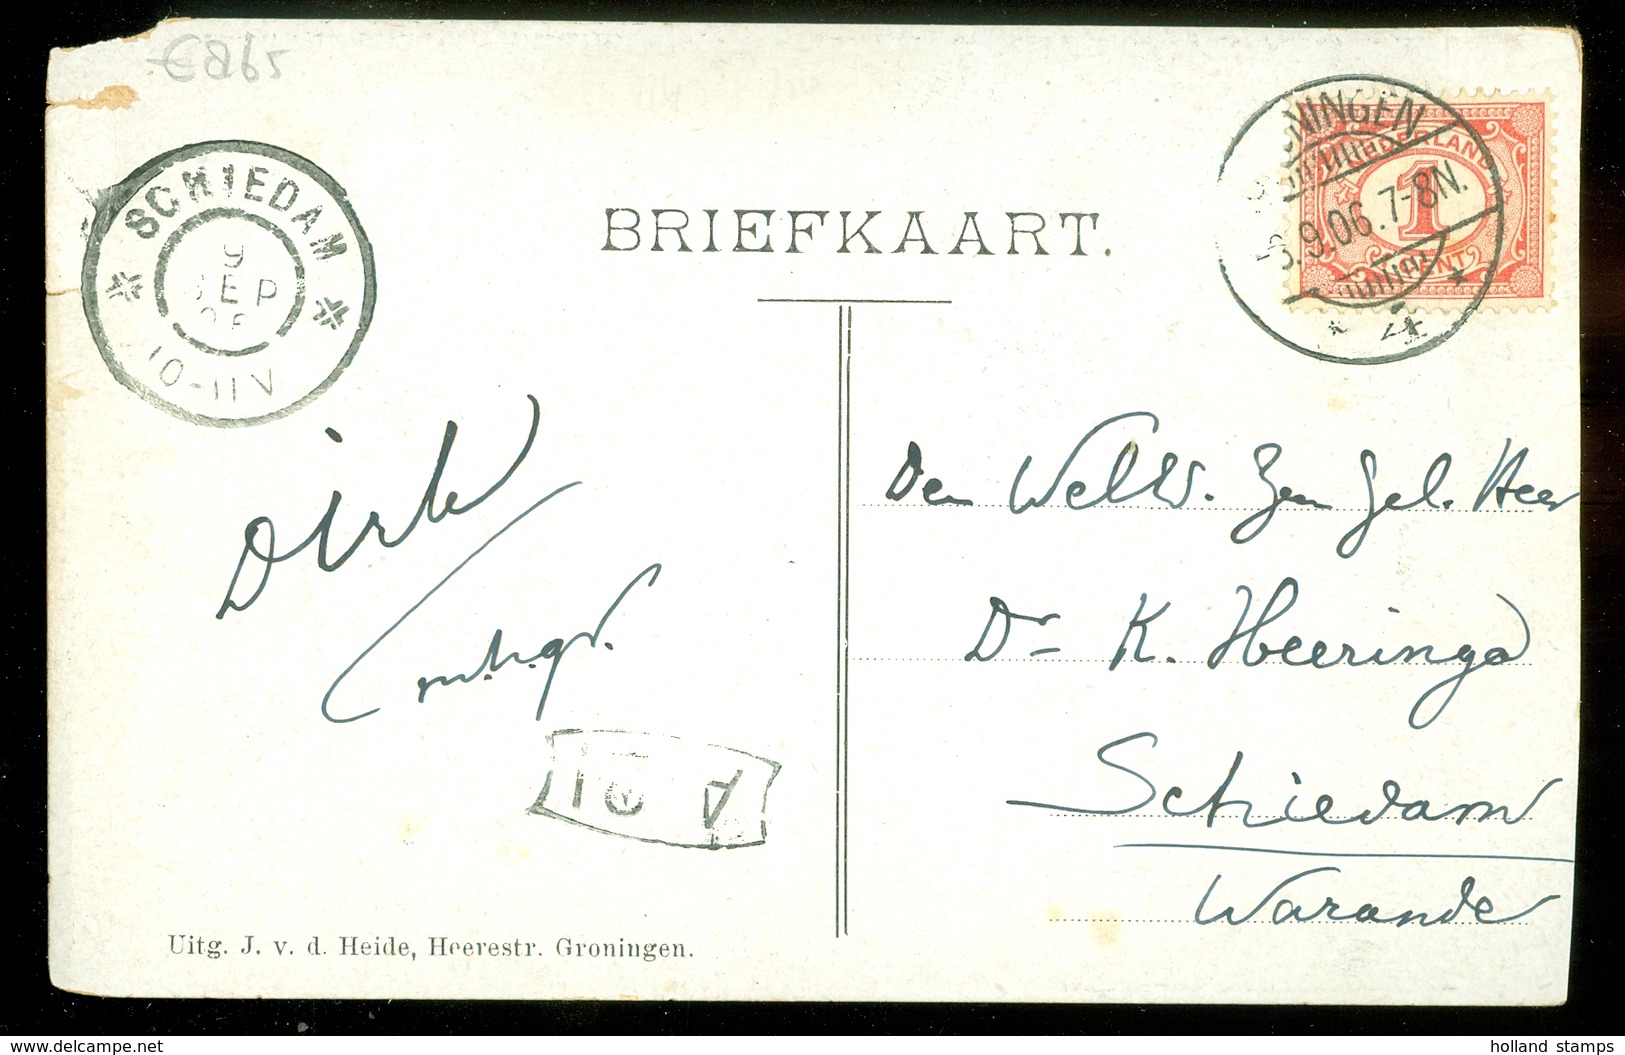 SCHIEDAM
9
SEP
10-11V
NINGEN
9.06.7-8N.
4
NEDERLAND
1
CENT
BRIEFKAART.
Dirk
m.h.gr.
Den WelEd. Zeer Gel. Heer
Dr K. Heeringa
Schiedam
Warande
Uitg. J. v. d. Heide, Heerestr. Groningen.
www.delcampe.net
holland stamps